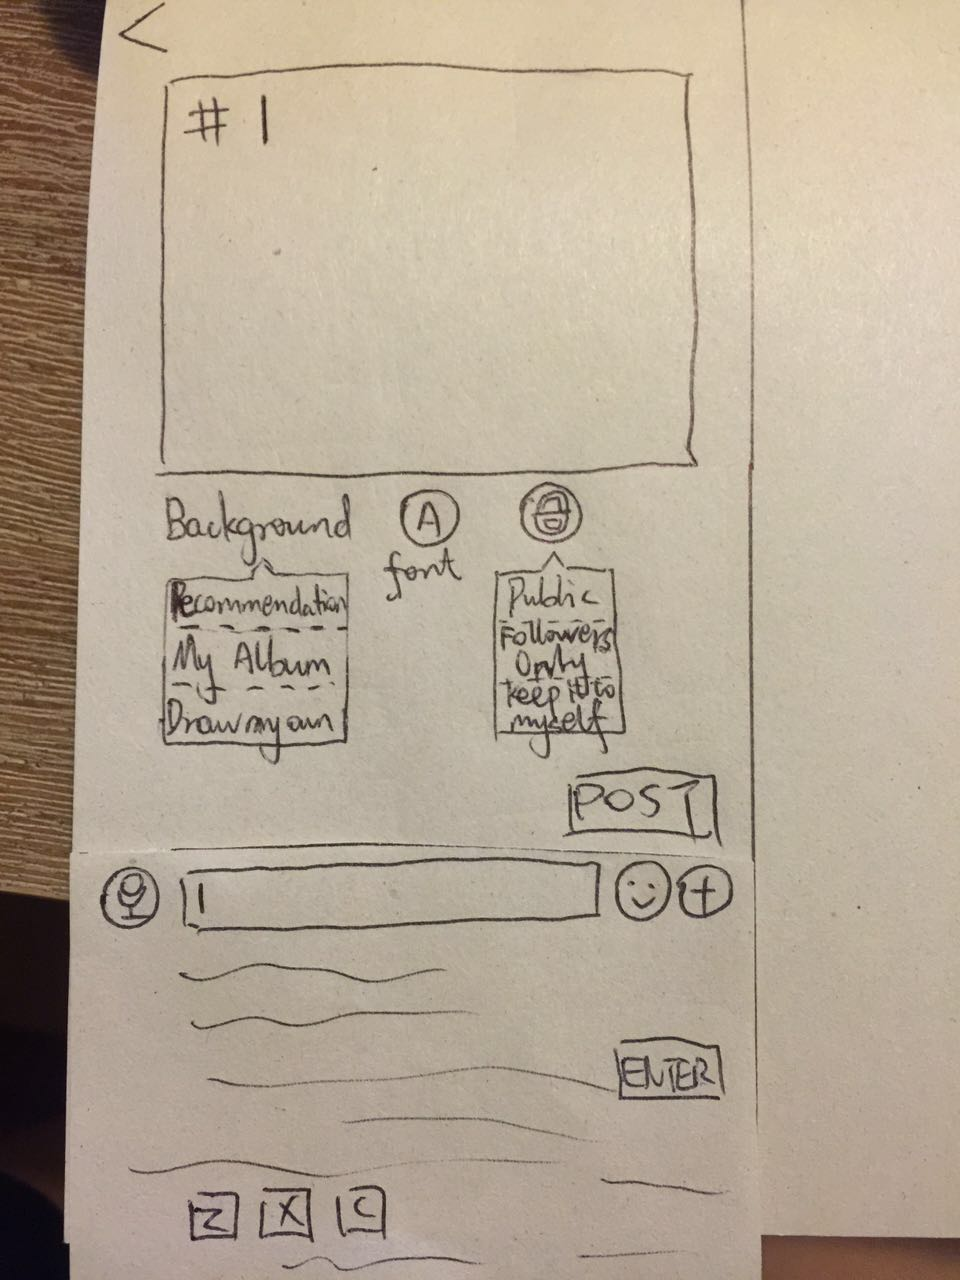 # |
Background
A
font
Recommendation
My Album
Draw my own
Public
Followers
Only
keep it to
myself
POST
ENTER
Z X C